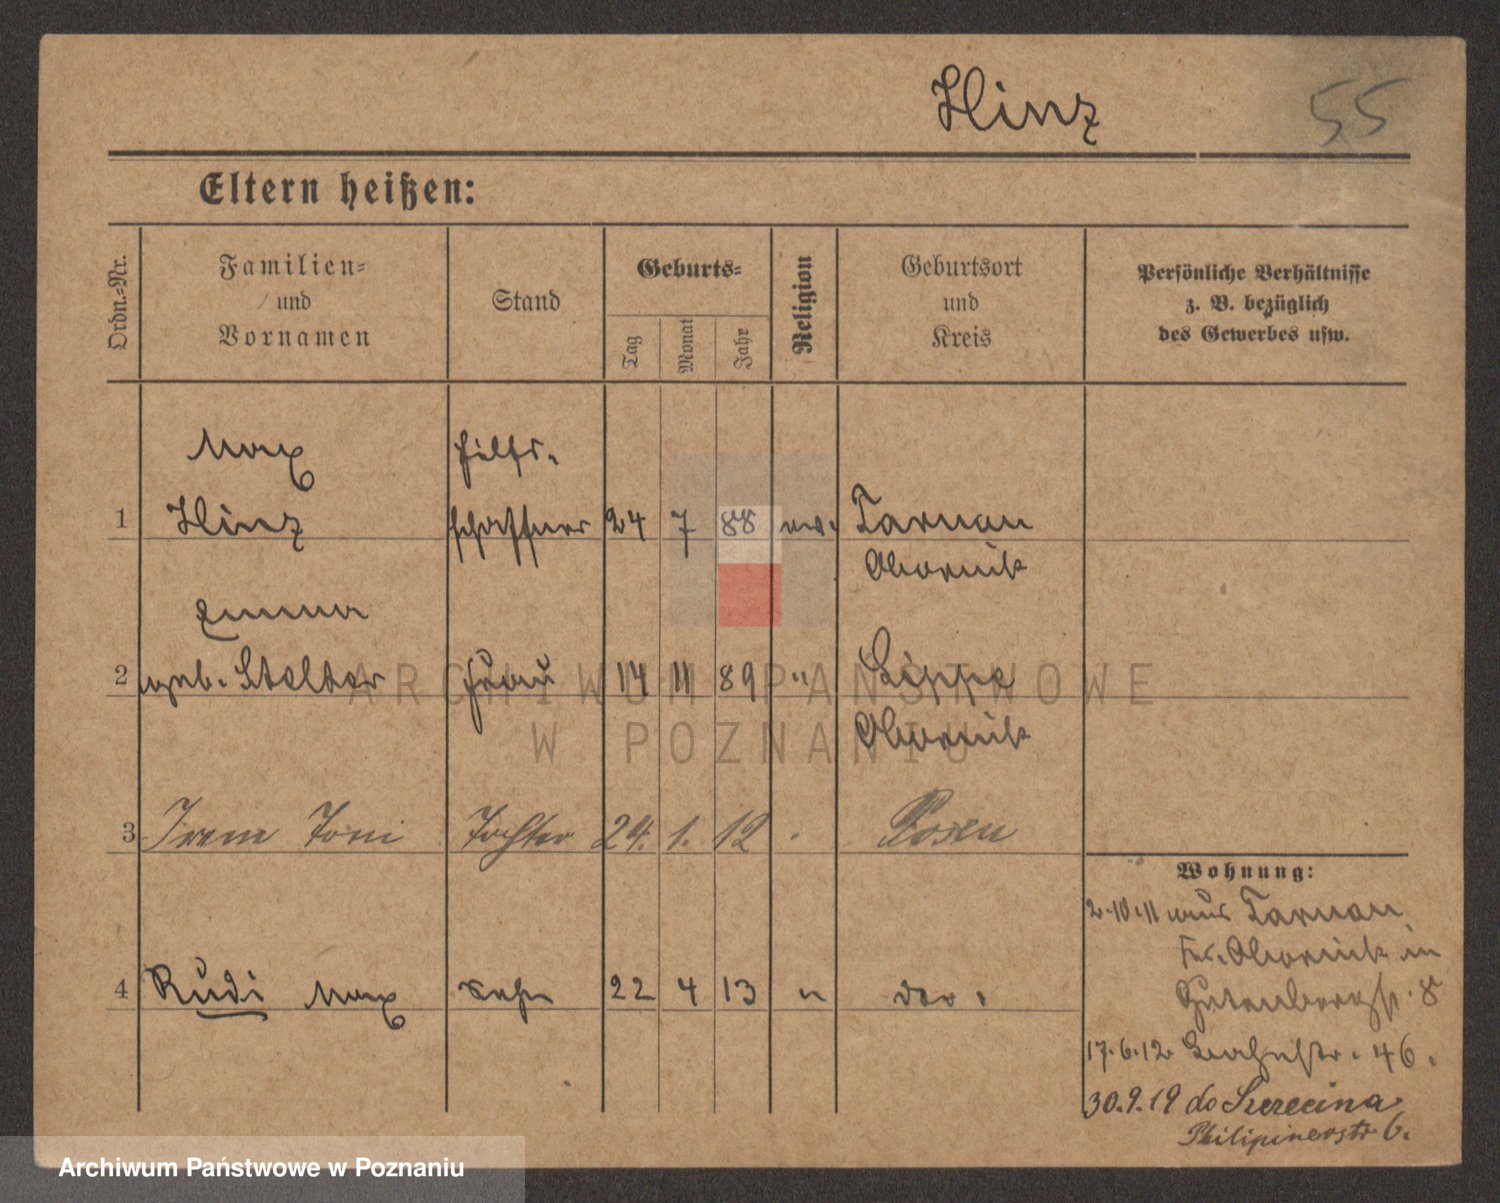 Hinz
55
Eltern heißen:
Ordn.-Nr.
Familien-
und
Vornamen
Stand
Geburts-
Tag
Monat
Jahr
Religion
Geburtsort
und
Kreis
Persönliche Verhältnisse
z. B. bezüglich
des Gewerbes usw.
Max
Hilfs-
1 Hinz schaffner 24 7 88 ev. Tarnau
Obornik
Emma
2 geb. Stelter Frau 14 11 89 " Lippe
Obornik
3 Irene Toni Tochter 24. 1. 12 Posen
Wohnung:
2.10.11 aus Tarnau
Kr. Obornik in
4 Rudi Max Sohn 22 4 13 " do.
Gutenbergstr. 8
17.6.12 46.
30.9.19 do Szczecina
Philipinerstr 6.
ARCHIWUM PAŃSTWOWE
W POZNANIU
Archiwum Państwowe w Poznaniu